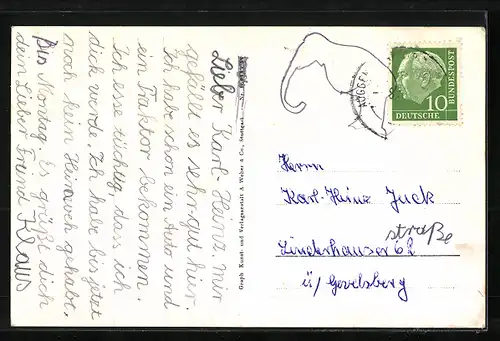 Lieber Karl-Heinz mir
gefällt es sehr gut hier.
Ich habe schon ein Auto und
ein Traktor bekommen.
Ich esse tüchtig, dass ich
dick werde. Ich habe bis jetzt
noch kein Heimweh gehabt.
Bis Montag. Es grüße dich
dein Lieber Freund Klaus
Graph. Kunst- und Verlagsanstalt A. Weber & Co., Stuttgart
DEUTSCHE
BUNDESPOST
10
Herrn
Karl-Heinz Juck
straße
Linderhauser 62
ü/ Gevelsberg